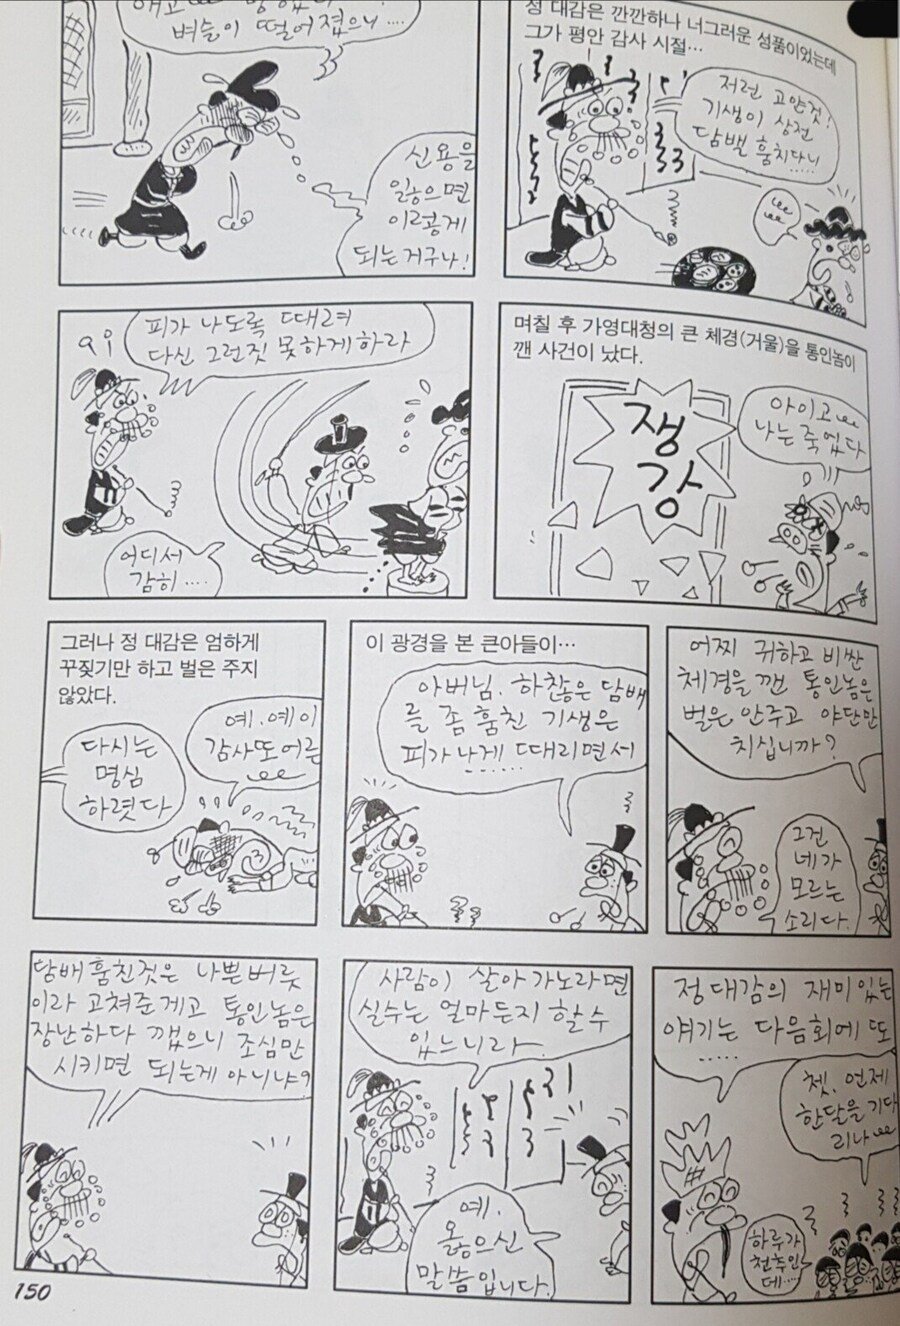 벼슬이 떨어졌으니....
신용을
잃으면
이렇게
되는거구나!
정 대감은 깐깐하나 너그러운 성품이었는데
그가 평안 감사 시절…
저런, 고얀것!
기생이 상전
담밸 훔치다니
.....
피가 나도록 때려
다신 그런짓 못하게하라
어디서
감히....
며칠 후 가영대청의 큰 체경(거울)을 통인놈이
깬 사건이 났다.
쟁
강
아이고
나는 죽었다
그러나 정 대감은 엄하게
꾸짖기만 하고 벌은 주지
않았다.
다시는
명심
하렷다
예. 예이
감사또어른
이 광경을 본 큰아들이…
아버님. 하찮은 담배
를 좀 훔친 기생은
피가나게 때리면서
......
어찌 귀하고 비싼
체경을 깬 통인놈은
벌은 안주고 야단만
치십니까?
그건
네가
모르는
소리다.
담배훔친것은 나쁜버릇
이라 고쳐준게고 통인놈은
장난하다 깼으니 조심만
시키면 되는게 아니냐?
사람이 살아가노라면
실수는 얼마든지 할수
있느니라
예.
옳으신
말씀입니다.
정대감의 재미있는
얘기는 다음회에 또
.....
쳇. 언제
한달을 기다
리나
하루가
천추인
데....
150